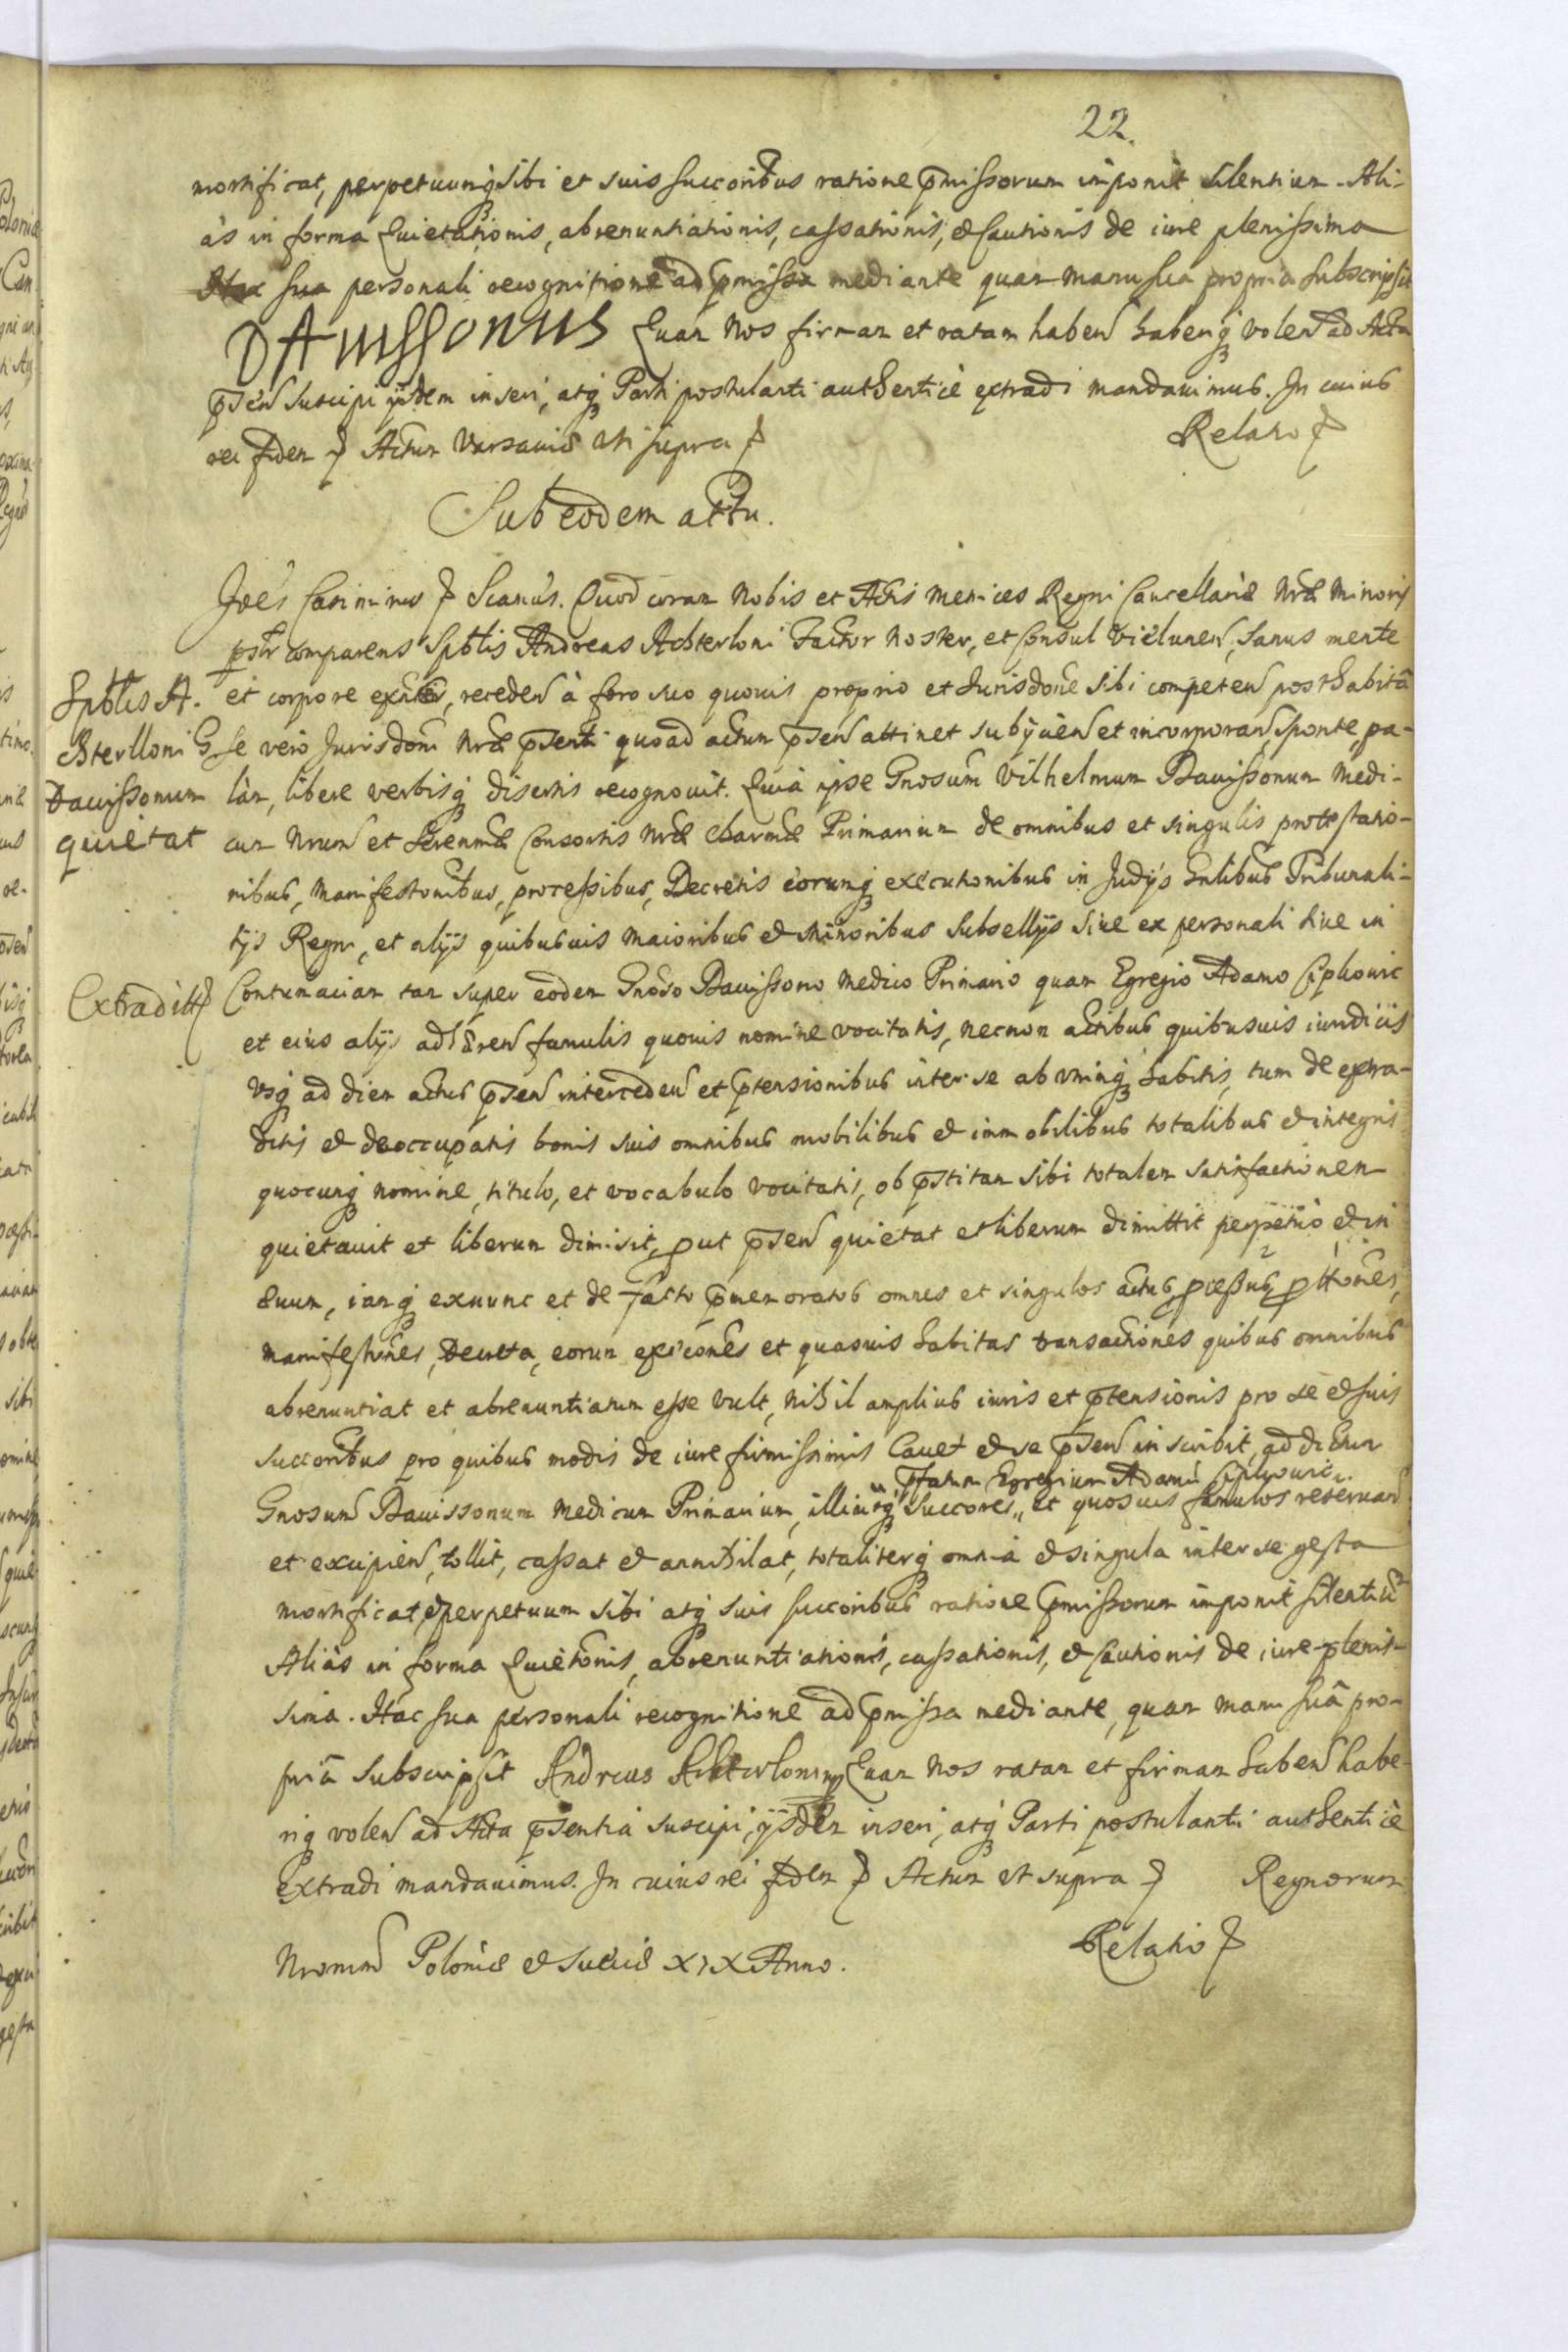 22.
mortificat, perpetuumq̃ sibi et suis succoribus ratione p̃missorum imponit silentium. Ali-
às in forma Quietationis, abrenuntiationis, cassationis, et Cautionis de iure plenissima
Hac sua personali recognitione ad p̃missa mediante quam manu sua propria subscripsit
DAuissonus Quam Nos firmam et ratam haben̄ haberiq̃ volen̄ ad Acta
p̃sen̄ suscipi ijsdem inseri, atq̃ Parti postulanti authenticè extradi mandauimus. In cuius
rei fidem Actum Varsauiæ uti supra
Relatio
Sub eodem actu.
Joēs Casimirus Scamus. Quod coram Nobis et Actis Metrices Regni Cancellariæ Nræ Minoris
p̃slr comparens Spblis Andreas Achterloni Factor Noster, et Consul Vielunen̄, sanus mente
et corpore existen̄, receden̄ à foro suo quouis proprio et Jurisdoñe sibi competen̄ posthabitâ
Spblis A.
chterlloni G.
Dauissonum
quietat
se vero Jurisdoñi Nræ p̃senti quoad actum p̃sen̄ attinet subijcien̄ et incorporan̄, sponte, pa-
làm, libere verbisq̃ disertis recognouit. Quià ipse Gnosum Vilhelmum Dauissonum Medi-
cum Nrum et Serenmæ Consortis Nræ charmæ Primarium de omnibus et singulis protestatio-
nibus, manifestonibus, processibus, Decretis eorumq̃ executionibus in Judijs Gnlibus Tribunali-
tijs Regni, et alijs quibusuis maioribus et minoribus Subsellijs siue ex personali siue in
Extraditt
Contumaciam tam super eodem Gnoso Dauissono Medico Primario quam Egregio Adamo Ciphouic
et eius alijs adhæren̄ famulis quouis nomine vocitatis, necnon actibus quibusuis iuridicis
vsq̃ ad diem actus p̃sen̄ interceden̄ et p̃tensionibus inter se ab vtrinq̃ habitis, tum de extra-
ditis et deoccupatis bonis suis omnibus mobilibus et immobilibus totalibus et integris
quocunq̃ nomine, titulo, et vocabulo vocitatis, ob p̃stitam sibi totalem satisfactionem
quietauit et liberum dimisit, prout p̃sen̄ quietat et liberum dimittit perpetuò et in
æuum, iamq̃ exnunc et de facto p̃memoratos omnes et singulos actus, processus, pttiones,
manifestiones, Decreta, eorum exčones et quasuis habitas transactiones quibus omnibus
abrenuntiat et abrenuntiatum esse vult, nihil amplius iuris et p̃tensionis pro se et suis
succoribus pro quibus modis de iure firmissimis Cauet et se p̃sen̄ inscribit, ad dictum
p̃fatum Egregium Adamū Ciphouic
Gnosum Dauissonum Medicum Primarium, illiusq̃ Succores, et quosuis famulos reseruan̄
et excipien̄, tollit, cassat et annihilat, totaliterq̃ omnia et singula inter se gesta
mortificat, et perpetuum sibi atq̃ suis succoribus ratione p̃missorum imponit silentiū
Aliàs in forma Quietonis, abrenuntiationis, cassationis, et Cautionis de iure plenis-
sima. Hac sua personali recognitione ad p̃missa mediante, quam manu suâ pro-
priâ subscripsit Andreas Achterlonny Quam Nos ratam et firmam haben̄ habe-
riq̃ volen̄ ad Acta p̃sentia suscipi, ijsdem inseri, atq̃ Parti postulanti authenticè
extradi mandauimus. In cuius rei fidem Actum ut supra Regnorum
Nrorum Poloniæ et Sueciæ XIX Anno.
Relatio